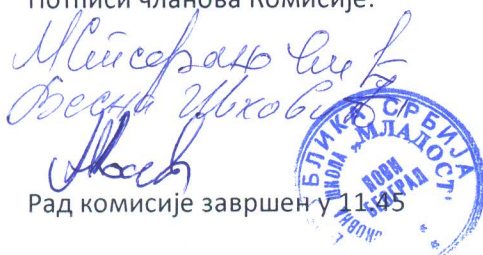 Потписи чланова Комисије:
Весна
Рад комисије завршен у 11.45
БЛИКА СРБИЈА
ОВНА ШКОЛА „МЛАДОСТ"
НОВИ
БЕОГРАД